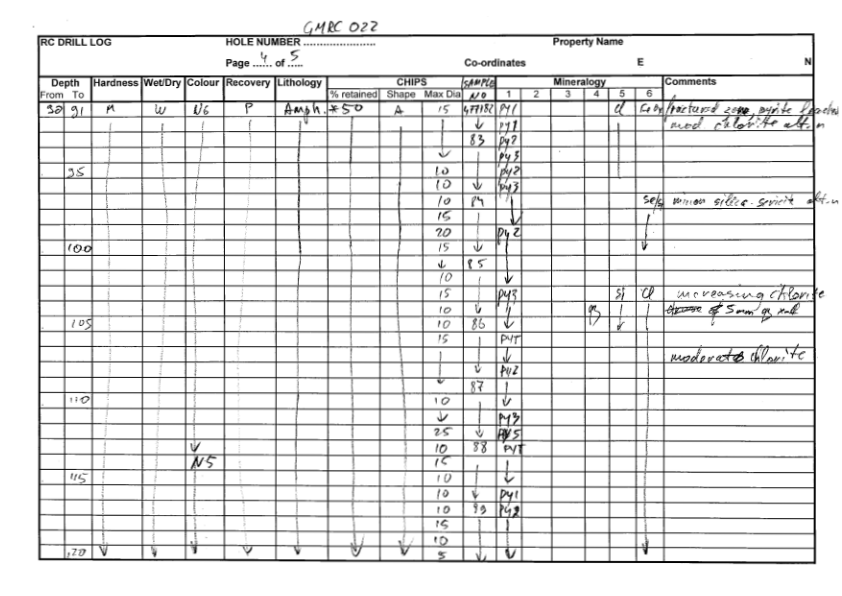 GMRC 022
RC DRILL LOG HOLE NUMBER ........................ Property Name
Page ..4.. of ..5.. Co-ordinates E N
Depth Hardness Wet/Dry Colour Recovery Lithology CHIPS SAMPLE Mineralogy Comments
From To % retained Shape Max Dia NO 1 2 3 4 5 6
90 91 M W N6 P Amph. *50 A 15 477182 PY1 Cl fractured zone, pyrite
↓ PY1 mod chlorite alt.n
83 PY2
↓ PY3
95 10 PY2
10 ↓ PY3
10 84 se/s minor silica-sericite alt.n
15 ↓
20 PY2
100 15 ↓ ↓
↓ 85
10 ↓
15 PY3 Si Cl increasing chlorite
10 ↓ qz 5mm qz
105 10 86 ↓ ↓
15 PYT
↓ moderate chlorite
↓ PY2
↓ 87
110 10 ↓
↓ PY3
25 ↓ PY5
↓ 10 88 PYT
N5 15
115 10 ↓
10 ↓ PY1
10 89 PY2
15
10
120 ↓ ↓ ↓ ↓ ↓ ↓ ↓ 5 ↓ ↓ ↓